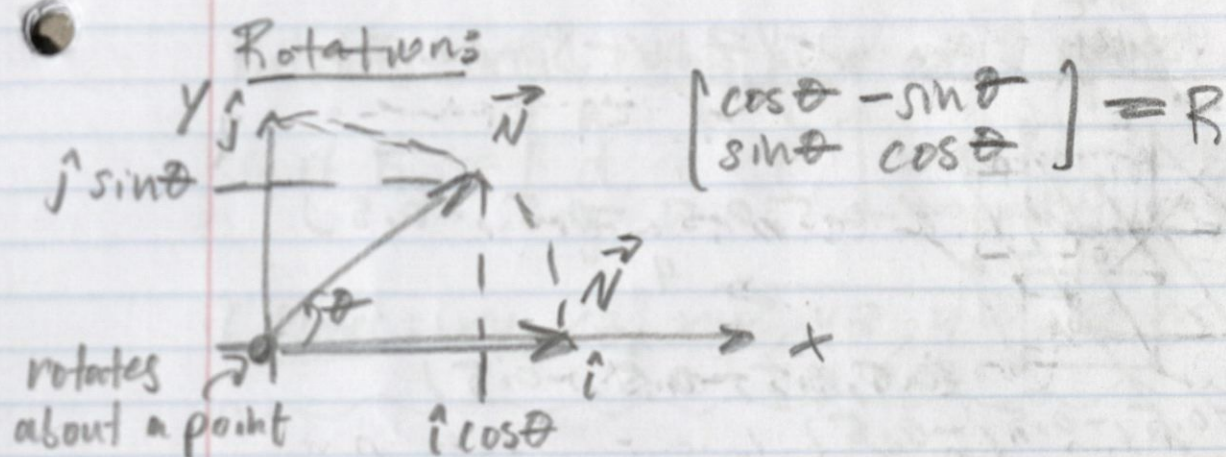 Rotations
Y ĵ
N⃗
[cosθ -sinθ
sinθ cosθ] = R
ĵ sinθ
θ
N⃗
x
î
rotates
about a point
î cosθ